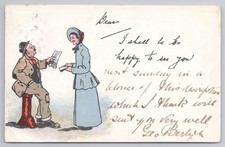 Dear
I shall to be
happy to see you
next sunday in a
dress of this description
which I think will
suit you very well
Geo